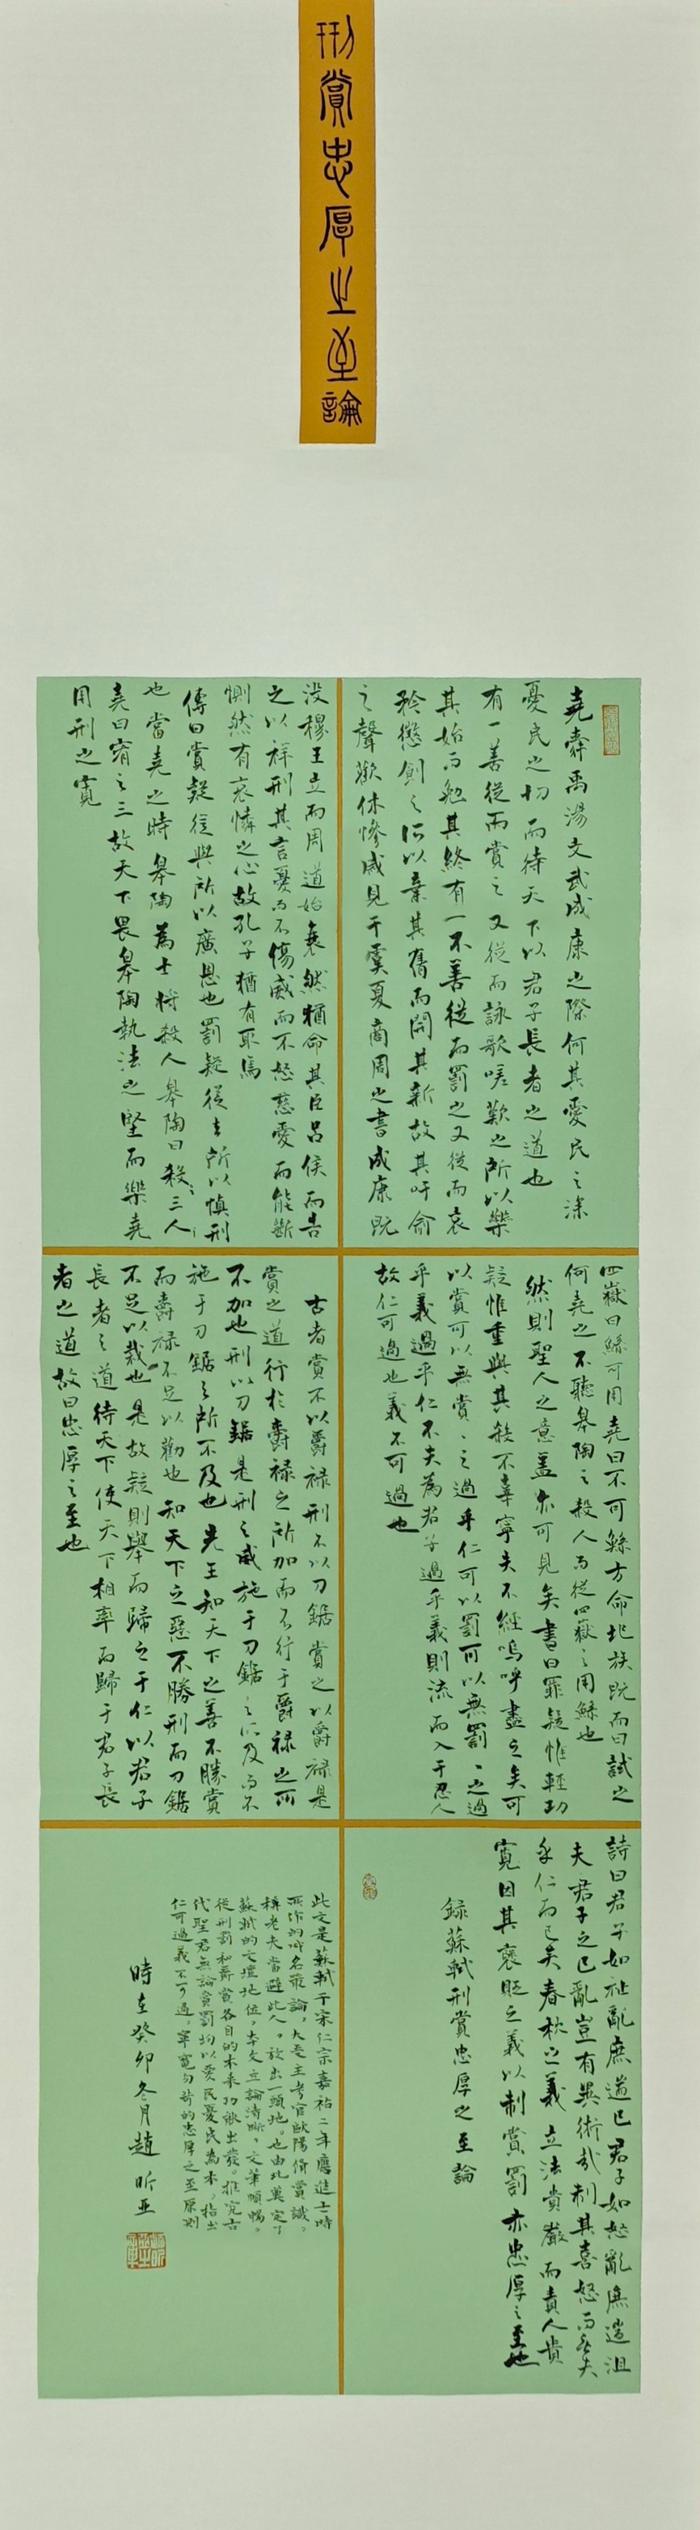 刑賞忠厚之至論
堯舜禹湯文武成康之際何其愛民之深
憂民之切而待天下以君子長者之道也
有一善從而賞之又從而詠歌嗟歎之所以樂
其始而勉其終有一不善從而罰之又從而哀
矜懲創之所以棄其舊而開其新故其吁俞
之聲歡休慘戚見于虞夏商周之書成康既
没穆王立而周道始衰然猶命其臣吕侯而告
之以祥刑其言憂而不傷威而不怒慈愛而能斷
惻然有哀憐之心故孔子猶有取焉
傳曰賞疑從與所以廣恩也罰疑從去所以慎刑
也當堯之時皋陶為士將殺人皋陶曰殺之三
堯曰宥之三故天下畏皋陶執法之堅而樂堯
用刑之寬
四嶽曰鯀可用堯曰不可鯀方命圮族既而曰試之
何堯之不聽皋陶之殺人而從四嶽之用鯀也
然則聖人之意蓋亦可見矣書曰罪疑惟輕功
疑惟重與其殺不辜寧失不經嗚呼盡之矣可
以賞可以無賞賞之過乎仁可以罰可以無罰罰之過
乎義過乎仁不失為君子過乎義則流而入于忍人
故仁可過也義不可過也
古者賞不以爵禄刑不以刀鋸賞之以爵禄是
賞之道行於爵禄之所加而不行于爵禄之所
不加也刑以刀鋸是刑之威施于刀鋸之所及而不
施于刀鋸之所不及也先王知天下之善不勝賞
而爵禄不足以勸也知天下之惡不勝刑而刀鋸
不足以裁也是故疑則舉而歸之于仁以君子
長者之道待天下使天下相率而歸于君子長
者之道故曰忠厚之至也
詩曰君子如祉亂庶遄已君子如怒亂庶遄沮
夫君子之已亂豈有異術哉制其喜怒而無失
乎仁而已矣春秋之義立法貴嚴而責人貴
寬因其褒貶之義以制賞罰亦忠厚之至也
録蘇軾刑賞忠厚之至論
此文是蘇軾于宋仁宗嘉祐二年應進士時
所作的成名策論，大受主考官歐陽脩賞識。
稱老夫當避此人。放出一頭地。也由此奠定了
蘇軾的文壇地位。本文立論清晰，文筆順暢。
從刑罰和爵賞各自的本来功能出發。推究古
代聖君無論賞罰均以愛民憂民為本，指出
仁可過義不可過，寧寬勿苛的忠厚之至原則
時在癸卯冬月趙昕亚